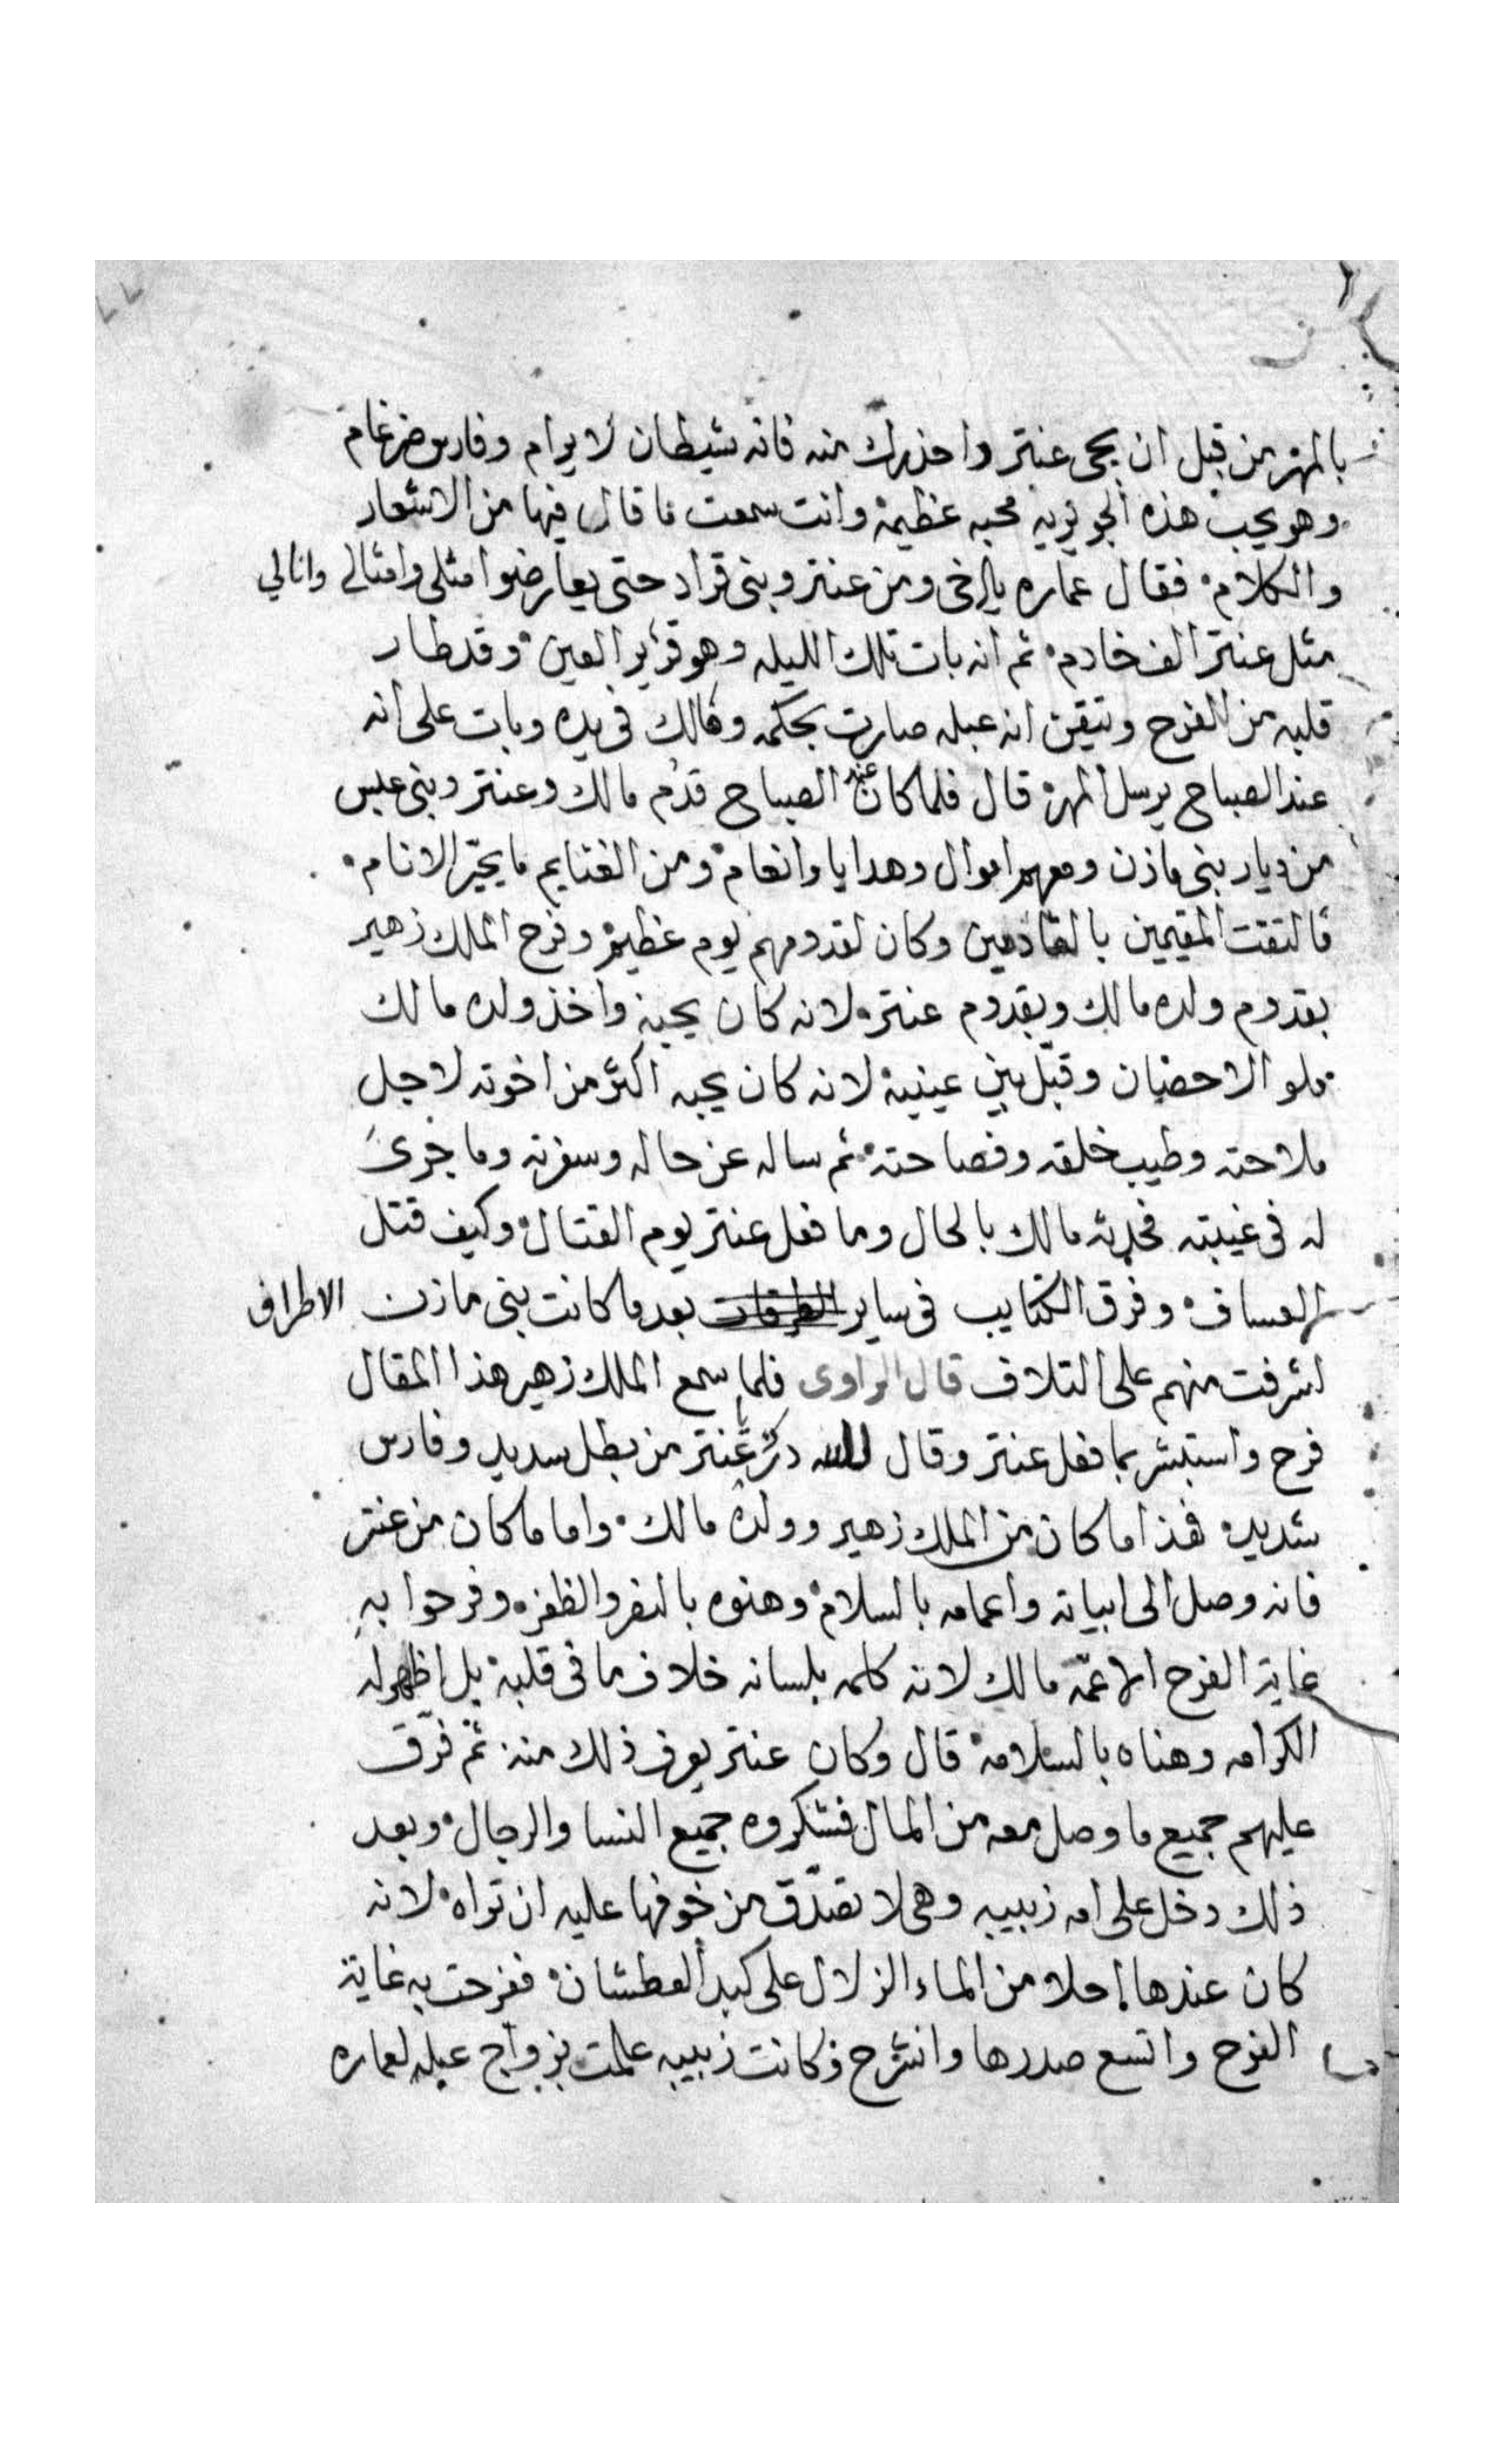 بالمهر من قبل ان يجى عنتر واحذرك منه فانه شيطان لا يرام وفارس ضرغام
وهو يحب هذه الجويريه محبه عظيمة وانت سمعت ما قال فيها من الاشعار
والكلام فقال عماره يا اخى ومن عنتر وبنى قراد حتى يعارضوا مثلى وامثالى وانا لي
مثل عنتر الف خادم ثم انه بات تلك الليله وهو قرير العين وقد طار
قلبه من الفرح وتيقن انه عبله صارت بحكمه ومالك فى يده وبات على انه
عند الصباح يرسل المهر قال فلما كان عند الصباح قدم مالك وعنتر وبنى عبس
من ديار بنى مازن ومعهم اموال وهدايا وانعام ومن الغنايم ما يحيّر الانام
فالتقت المقيمين بالقادمين وكان لقدومهم يوم عظيم وفرح الملك زهير
بقدوم ولده مالك وبقدوم عنتر لانه كان يحبه واخذ ولده مالك
ملو الاحضان وقبّل بين عينيه لانه كان يحبه اكثر من اخوته لاجل
ملاحته وطيب خلقه وفصاحته ثم ساله عن حاله وسفرته وما جرى
له فى غيبته فحدثه مالك بالحال وما فعل عنتر يوم القتال وكيف قتل
العساف وفرق الكتايب فى ساير الطرقات بعد ما كانت بنى مازن الاطراف
اشرفت منهم على التلاف قال الراوى فلما سمع الملك زهير هذا المقال
فرح واستبشر بما فعل عنتر وقال لله درك يا عنتر من بطل سديد وفارس
شديد فهذا ما كان من الملك زهير وولده مالك واما ما كان من عنتر
فانه وصل الى ابياته واعمامه بالسلام وهنوه بالنصر والظفر وفرحوا به
غاية الفرح الا عمّه مالك لانه كلمه بلسانه خلاف ما فى قلبه بل اظهر له
الكرامه وهناه بالسلامة قال وكان عنتر يعرف ذلك منه ثم فرّق
عليهم جميع ما وصل معه من المال فشكروه جميع النسا والرجال وبعد
ذلك دخل على امه زبيبه وهى لا تصدّق من خوفها عليه ان تراه لانه
كان عندها احلا من الماء الزلال على كبد العطشان ففرحت به غاية
الفرح واتسع صدرها وانشرح وكانت زبيبه علمت بزواج عبله لعماره